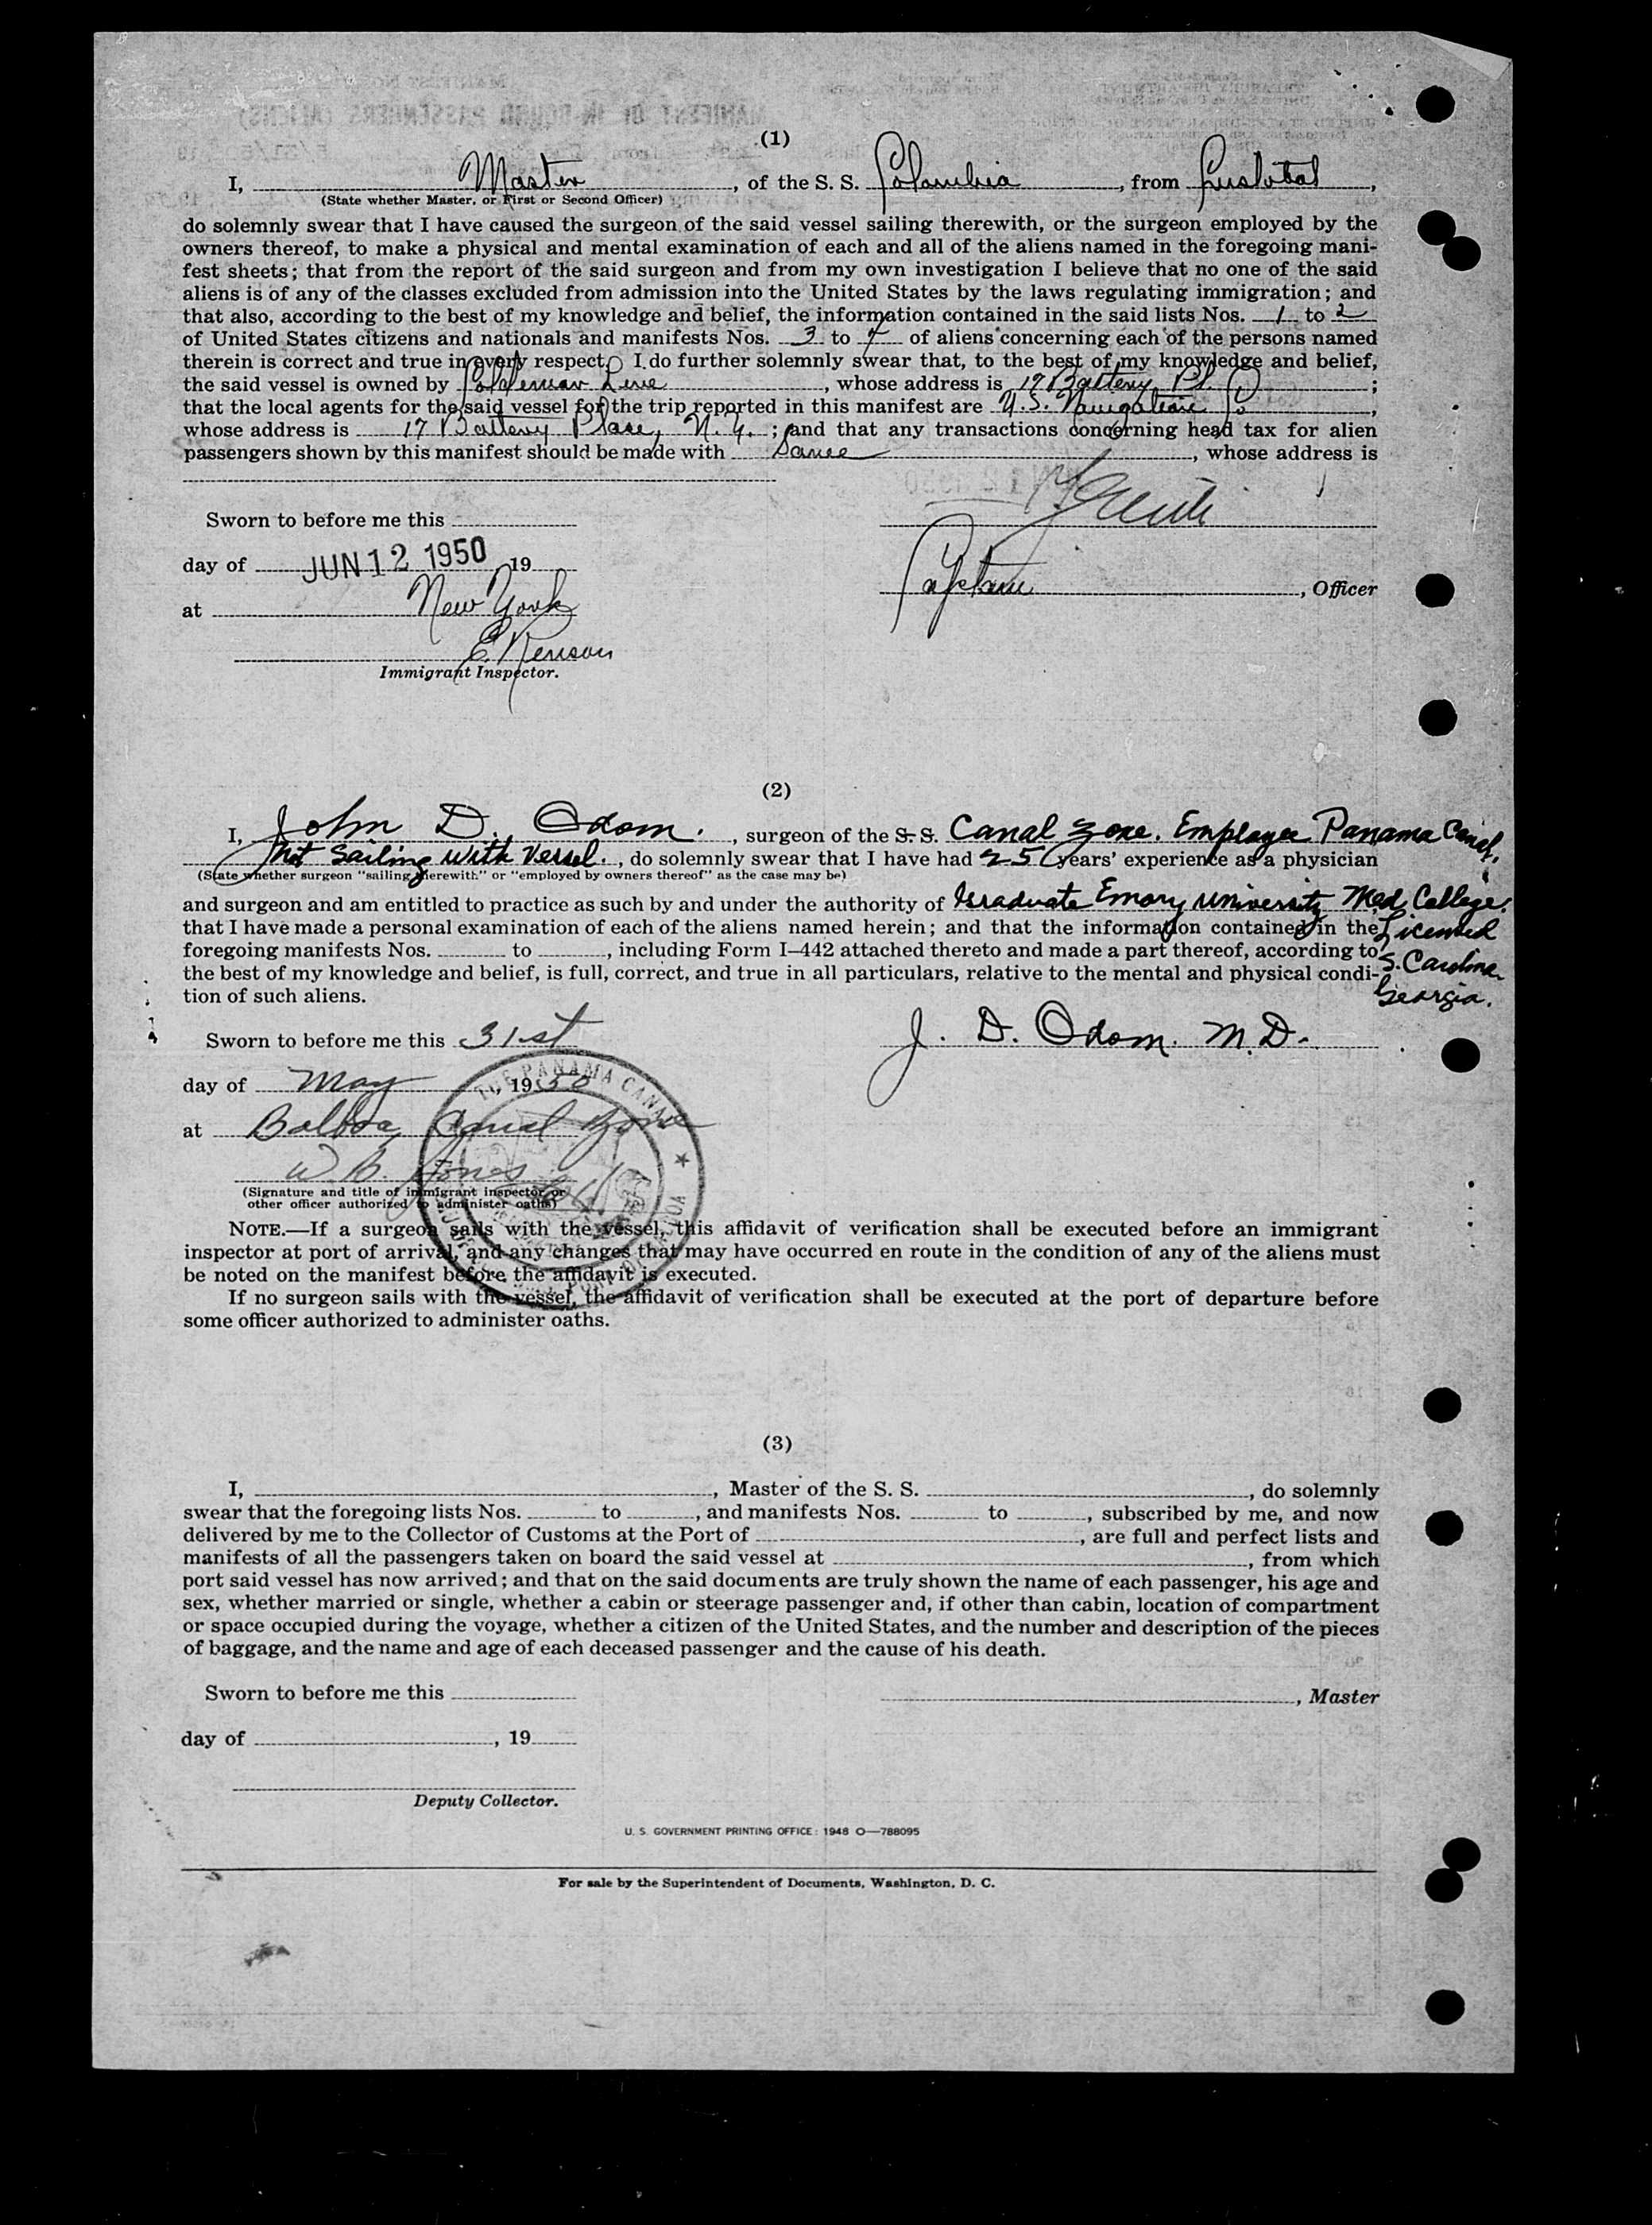 (1)
I, Master, of the S. S. Columbia, from Cristobal,
(State whether Master, or First or Second Officer)
do solemnly swear that I have caused the surgeon of the said vessel sailing therewith, or the surgeon employed by the
owners thereof, to make a physical and mental examination of each and all of the aliens named in the foregoing mani-
fest sheets; that from the report of the said surgeon and from my own investigation I believe that no one of the said
aliens is of any of the classes excluded from admission into the United States by the laws regulating immigration; and
that also, according to the best of my knowledge and belief, the information contained in the said lists Nos. 1 to 2
of United States citizens and nationals and manifests Nos. 3 to of aliens concerning each of the persons named
therein is correct and true in every respect. I do further solemnly swear that, to the best of my knowledge and belief,
the said vessel is owned by Line, whose address is 17 Battery Pl.;
that the local agents for the said vessel for the trip reported in this manifest are U.S. Navigation Co,
whose address is 17 Battery Place, N. Y.; and that any transactions concerning head tax for alien
passengers shown by this manifest should be made with Same, whose address is
Sworn to before me this
day of JUN 12 1950, 19
at New York
Captain, Officer
Immigrant Inspector.
(2)
I, John D. Odom., surgeon of the S. S. Canal Zone. Employee Panama Canal.
Not Sailing With Vessel., do solemnly swear that I have had 25 years' experience as a physician
(State whether surgeon "sailing therewith" or "employed by owners thereof" as the case may be)
and surgeon and am entitled to practice as such by and under the authority of Graduate Emory University Med College.
that I have made a personal examination of each of the aliens named herein; and that the information contained in the Licensed
foregoing manifests Nos. to , including Form I–442 attached thereto and made a part thereof, according to S. Carolina
the best of my knowledge and belief, is full, correct, and true in all particulars, relative to the mental and physical condi- Georgia.
tion of such aliens.
Sworn to before me this 31st
J. D. Odom. M.D.
day of May, 1950
at Balboa, Canal Zone
W. B. Jones
THE PANAMA CANAL
(Signature and title of immigrant inspector or
other officer authorized to administer oaths)
NOTE.—If a surgeon sails with the vessel, this affidavit of verification shall be executed before an immigrant
inspector at port of arrival, and any changes that may have occurred en route in the condition of any of the aliens must
be noted on the manifest before the affidavit is executed.
If no surgeon sails with the vessel, the affidavit of verification shall be executed at the port of departure before
some officer authorized to administer oaths.
(3)
I, , Master of the S. S. , do solemnly
swear that the foregoing lists Nos. to , and manifests Nos. to , subscribed by me, and now
delivered by me to the Collector of Customs at the Port of , are full and perfect lists and
manifests of all the passengers taken on board the said vessel at , from which
port said vessel has now arrived; and that on the said documents are truly shown the name of each passenger, his age and
sex, whether married or single, whether a cabin or steerage passenger and, if other than cabin, location of compartment
or space occupied during the voyage, whether a citizen of the United States, and the number and description of the pieces
of baggage, and the name and age of each deceased passenger and the cause of his death.
Sworn to before me this
, Master
day of , 19
Deputy Collector.
U. S. GOVERNMENT PRINTING OFFICE: 1948 O—788095
For sale by the Superintendent of Documents, Washington, D. C.